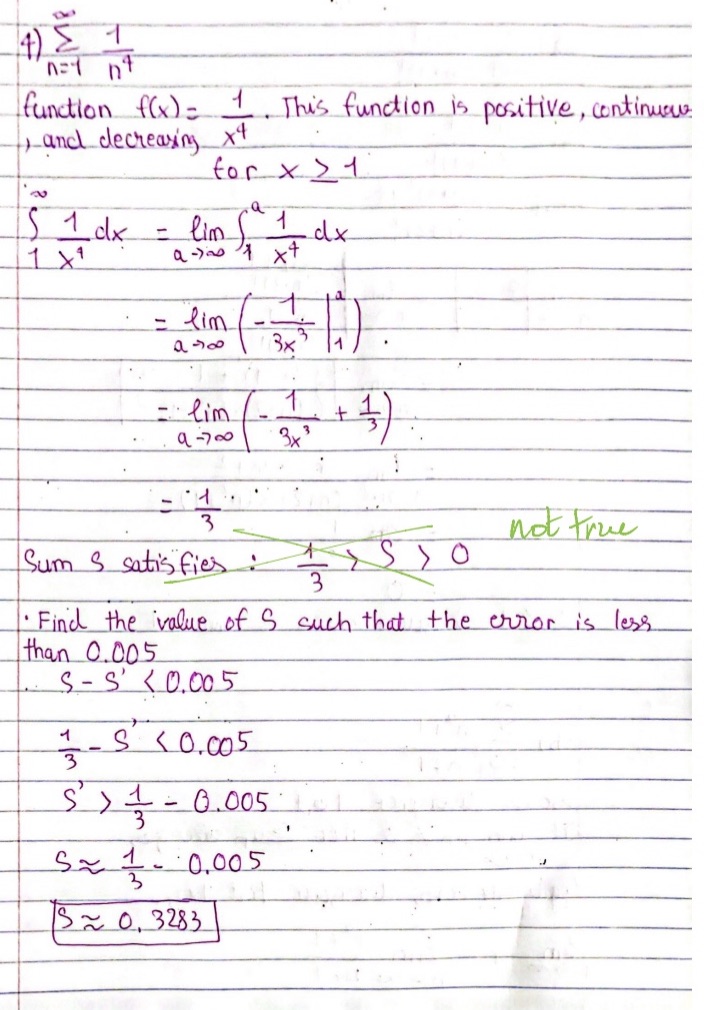 4) ∞∑n=1 1/n⁴
function f(x) = 1/x⁴. This function is positive, continuous
, and decreasing
for x ≥ 1
∫₁^∞ 1/x⁴ dx = lim a→∞ ∫₁^a 1/x⁴ dx
= lim a→∞ (-1/3x³ |₁^a).
= lim a→∞ (-1/3x³ + 1/3)
= 1/3
not true
Sum S satisfies : 1/3 > S > 0
· Find the value of S such that the error is less
than 0.005
S - S' < 0.005
1/3 - S' < 0.005
S' > 1/3 - 0.005
S ≈ 1/3 - 0.005
S ≈ 0.3283